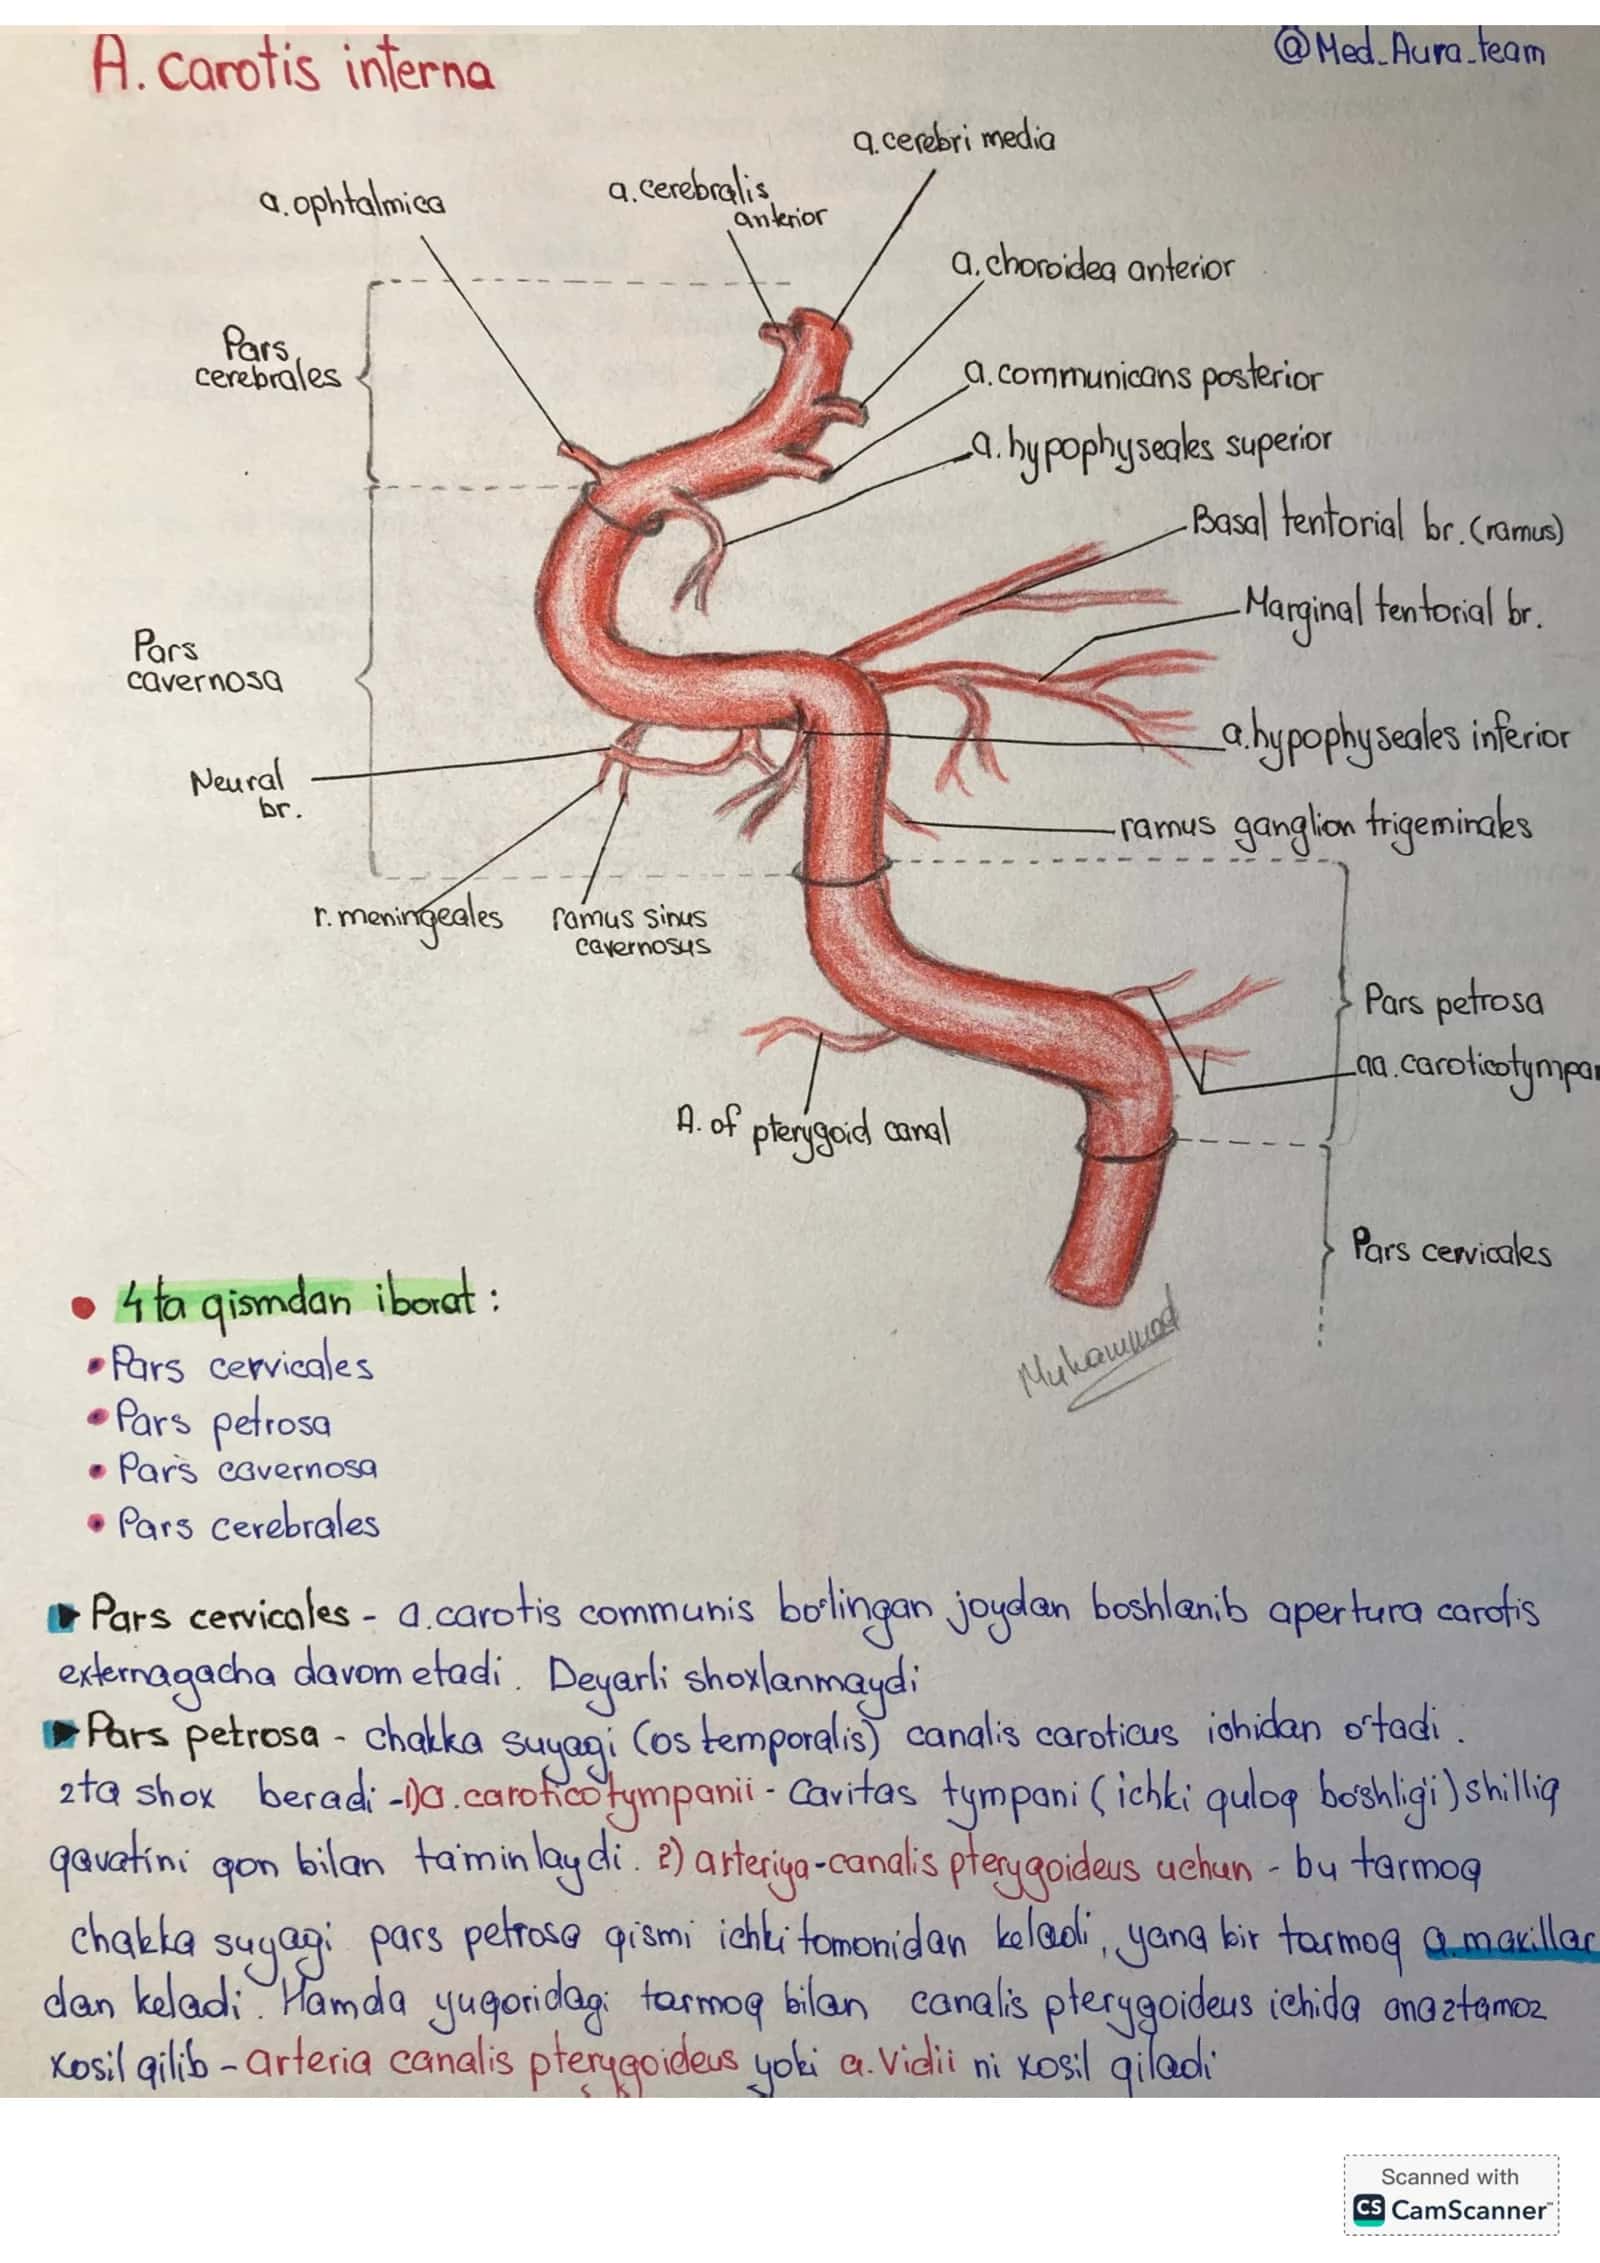 A. carotis interna
@Med_Aura_team
a.cerebri media
a.ophtalmica
a.cerebralis
anterior
a.choroidea anterior
Pars
cerebrales
a.communicans posterior
a.hypophyseales superior
Basal tentorial br.(ramus)
Marginal tentorial br.
Pars
cavernosa
a.hypophyseales inferior
Neural
br.
ramus ganglion trigeminales
r.meningeales
ramus sinus
cavernosus
Pars petrosa
aa.caroticotympa
A. of pterygoid canal
Pars cervicales
Muhammad
• 4 ta qismdan iborat :
• Pars cervicales
• Pars petrosa
• Pars cavernosa
• Pars cerebrales
Pars cervicales - a.carotis communis bo'lingan joydan boshlanib apertura carotis
externagacha davom etadi. Deyarli shoxlanmaydi
Pars petrosa - chakka suyagi (os temporalis) canalis caroticus ichidan o'tadi.
2ta shox beradi -1)a.caroticotympanii - Cavitas tympani (ichki quloq bo'shlig'i) shilliq
qavatini qon bilan ta'minlaydi. 2) arteriya-canalis pterygoideus uchun - bu tarmoq
chakka suyagi pars petrosa qismi ichki tomonidan keladi, yana bir tarmoq a.maxillar
dan keladi. Hamda yuqoridagi tarmoq bilan canalis pterygoideus ichida anaztamoz
xosil qilib - arteria canalis pterygoideus yoki a. Vidii ni xosil qiladi
Scanned with
CS CamScanner